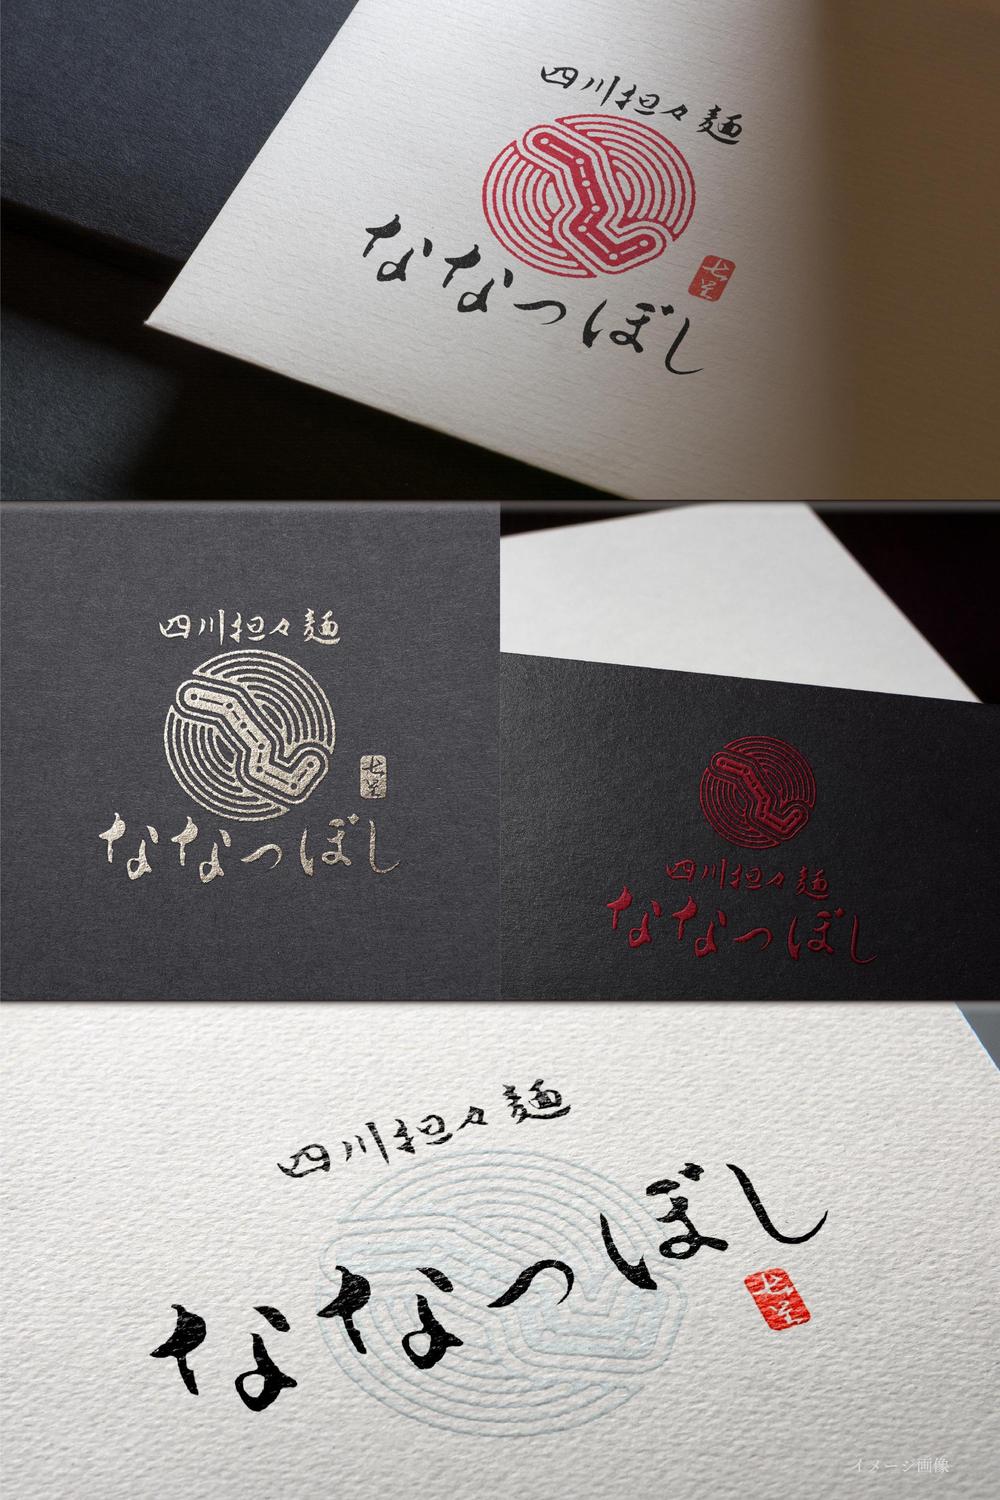 四川担々麺
ななつぼし
七星
四川担々麺
七星
ななつぼし
四川担々麺
ななつぼし
四川担々麺
ななつぼし
七星
イメージ画像